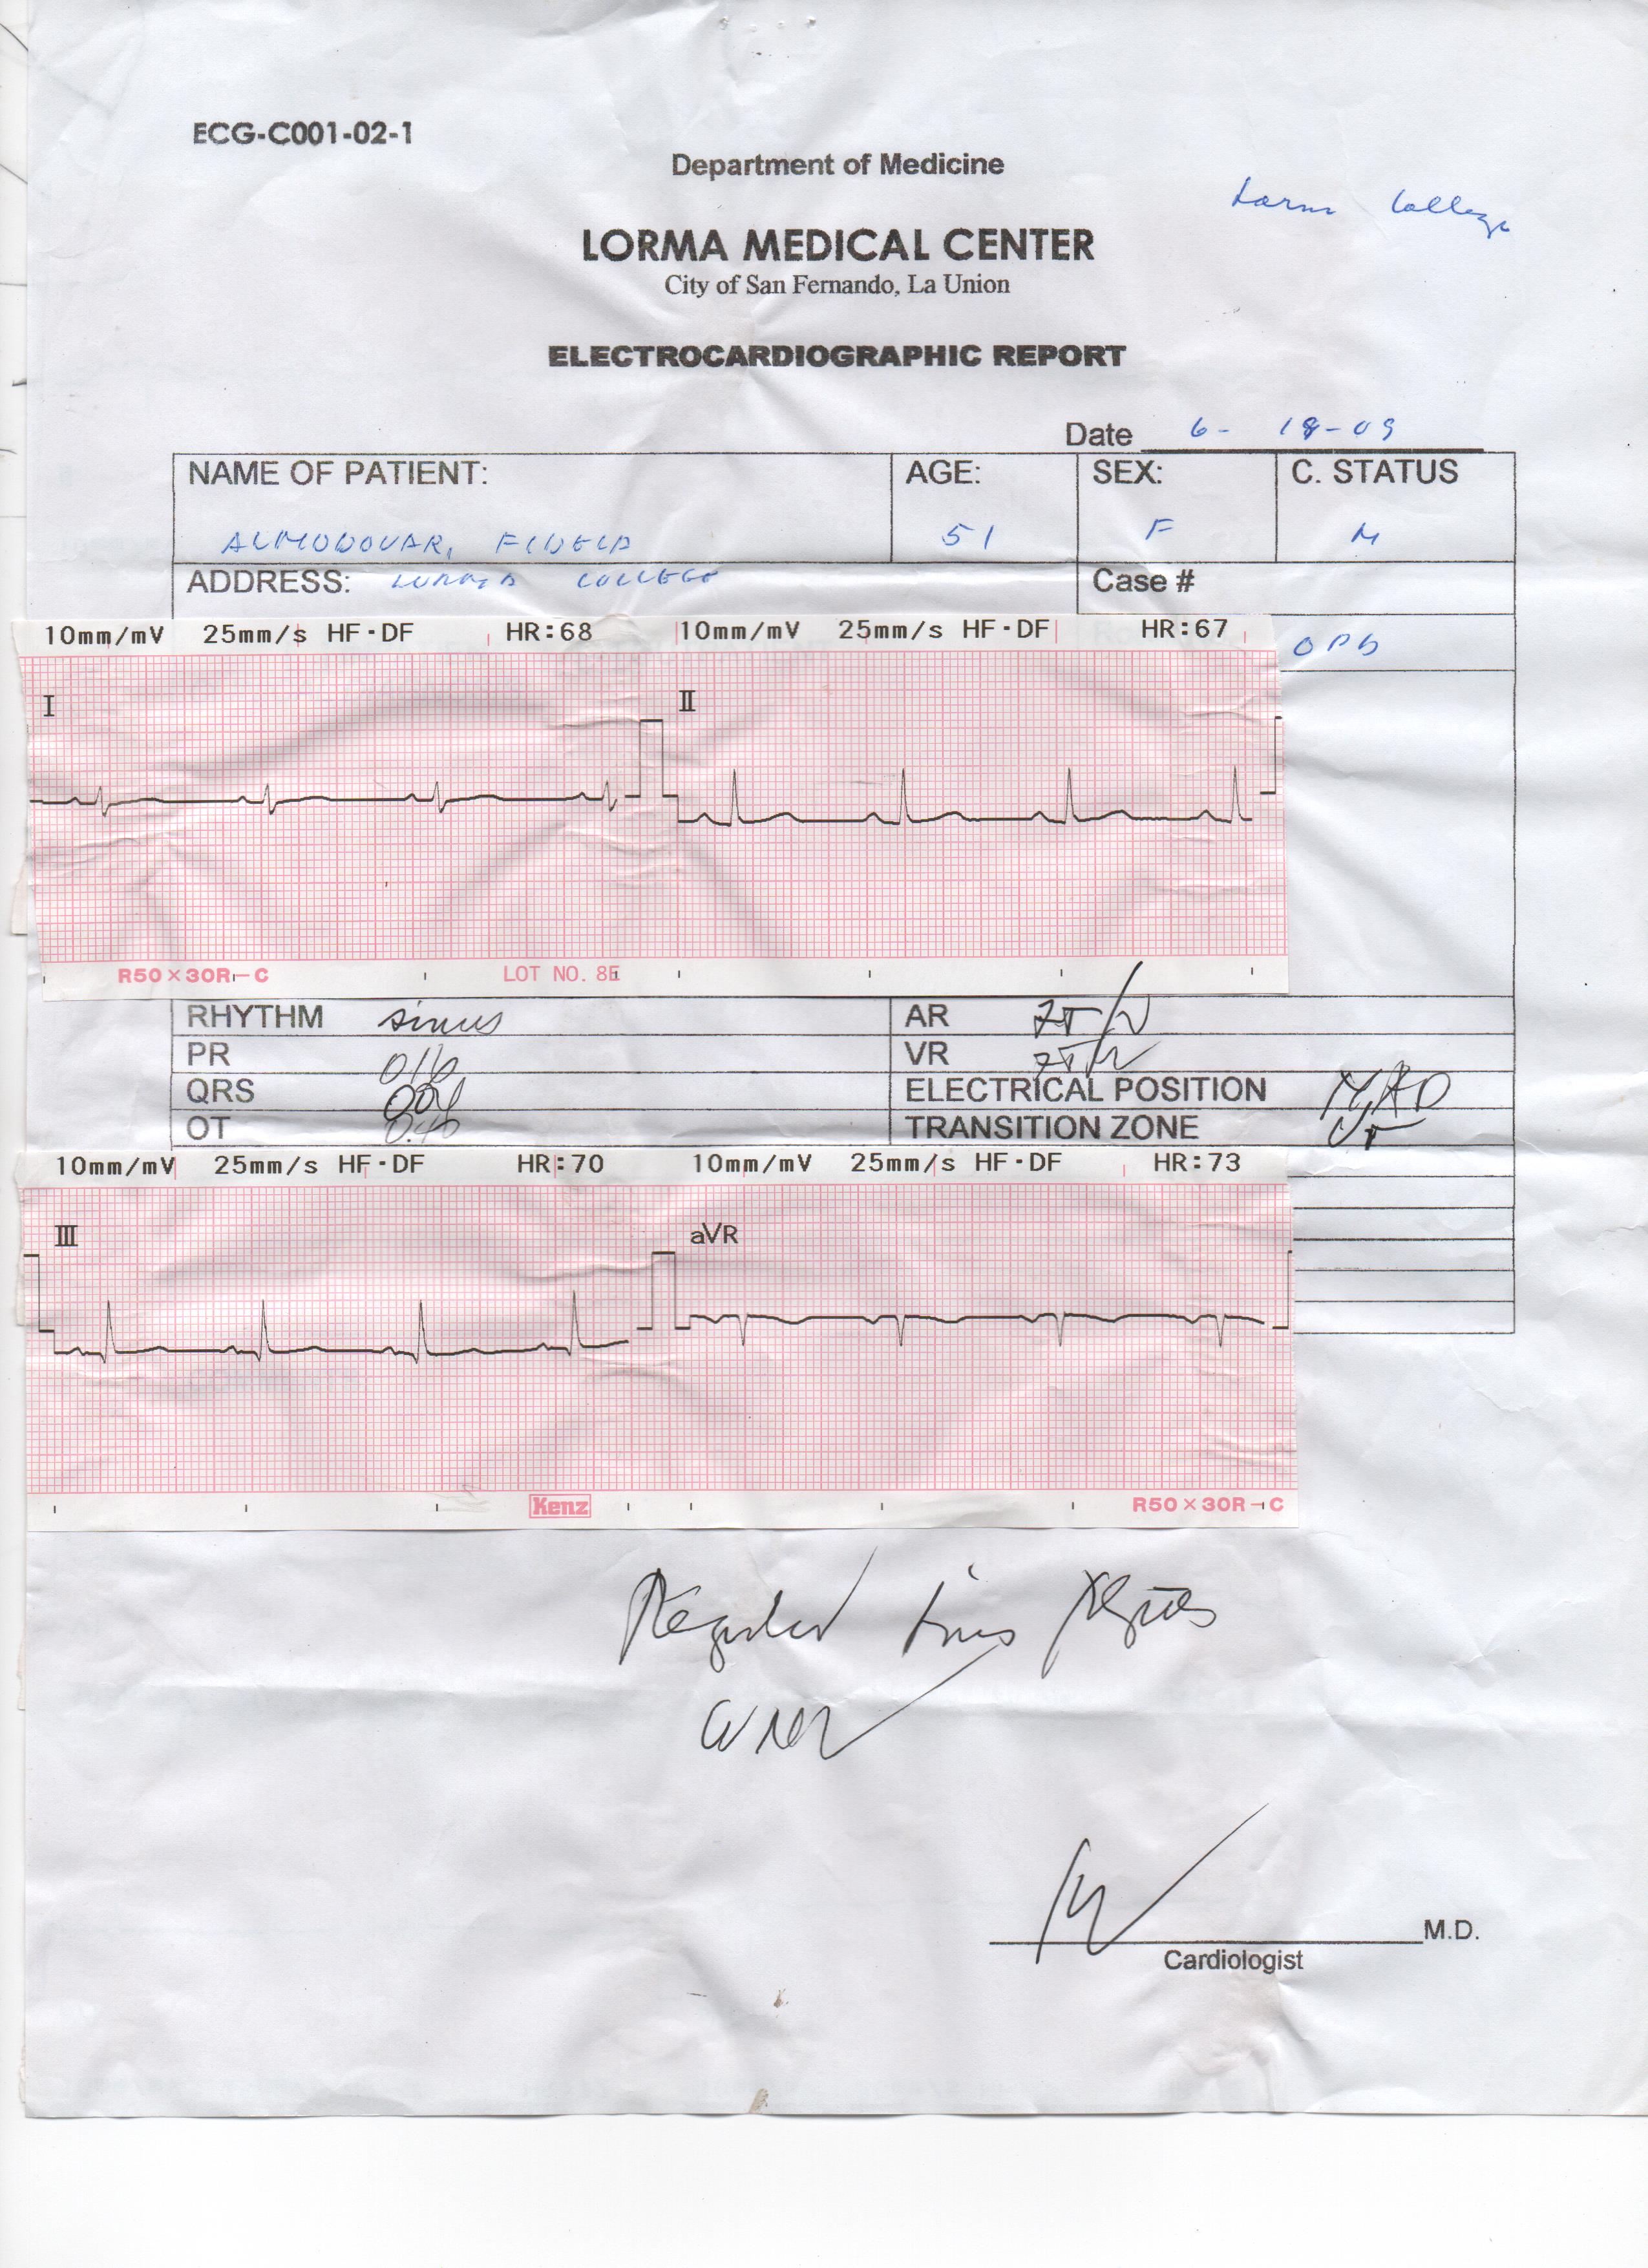 ECG-C001-02-1
Department of Medicine
Lorma College
LORMA MEDICAL CENTER
City of San Fernando, La Union
ELECTROCARDIOGRAPHIC REPORT
Date 6- 18-09
NAME OF PATIENT: AGE: SEX: C. STATUS
ALMODOVAR, FIDELA 51 F M
ADDRESS: LORMA COLLEGE Case #
10mm/mV 25mm/s HF·DF HR:68 10mm/mV 25mm/s HF·DF HR:67
OPD
I II
R50×30R-C LOT NO. 8E
RHYTHM sinus AR 75/
PR 016 VR 75/
QRS ELECTRICAL POSITION
QT TRANSITION ZONE
10mm/mV 25mm/s HF·DF HR:70 10mm/mV 25mm/s HF·DF HR:73
III aVR
Kenz R50×30R-C
Regular sinus
M.D.
Cardiologist